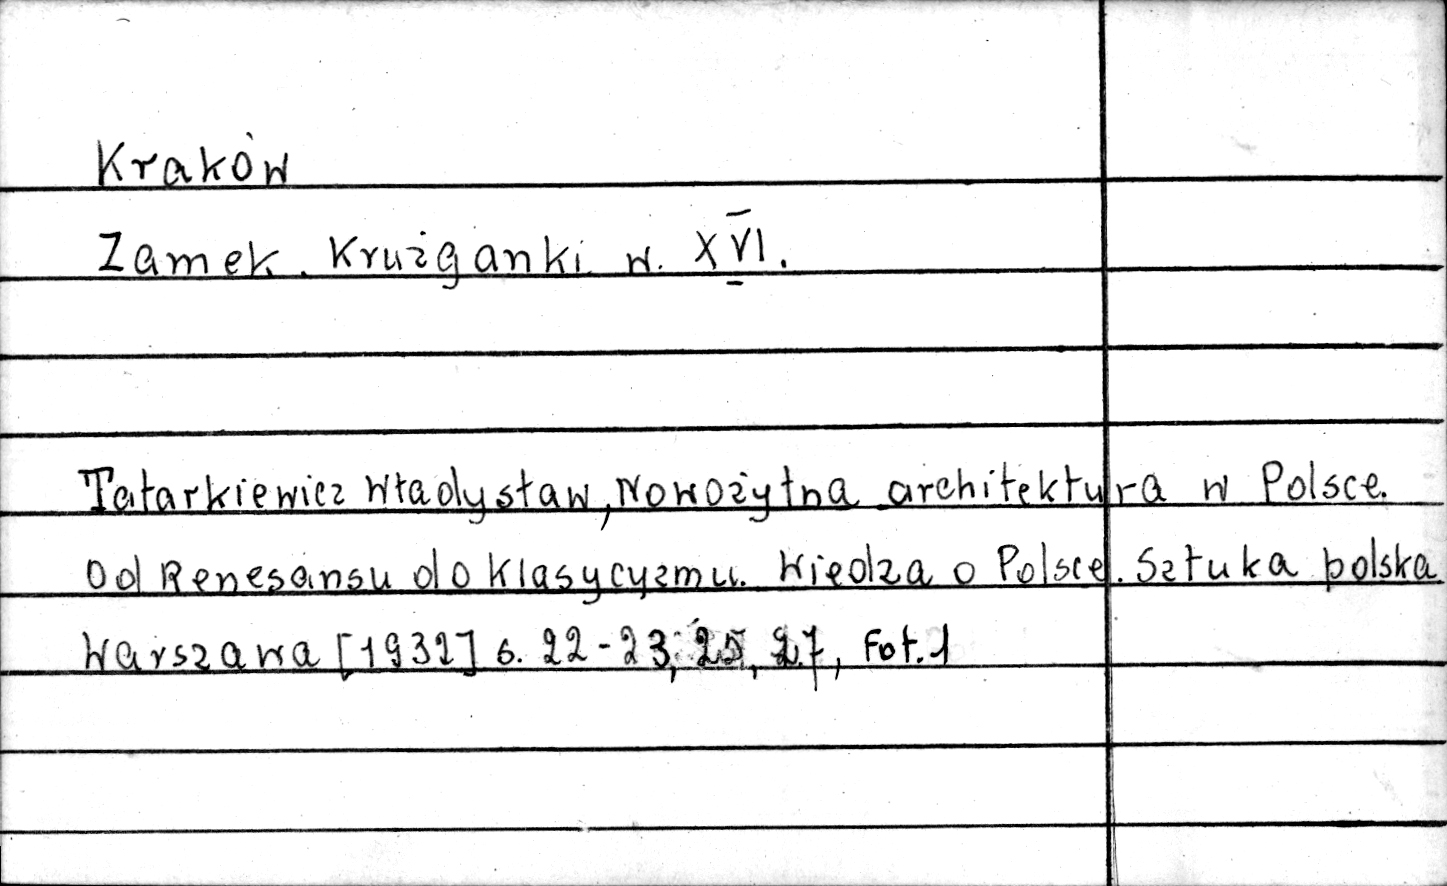 Kraków
Zamek. Krużganki w. XVI.
Tatarkiewicz Władysław, Nowożytna architektura w Polsce.
Od Renesansu do klasycyzmu. Wiedza o Polsce. Sztuka polska
Warszawa [1932] s. 22-23, 25, 27, Fot. 1